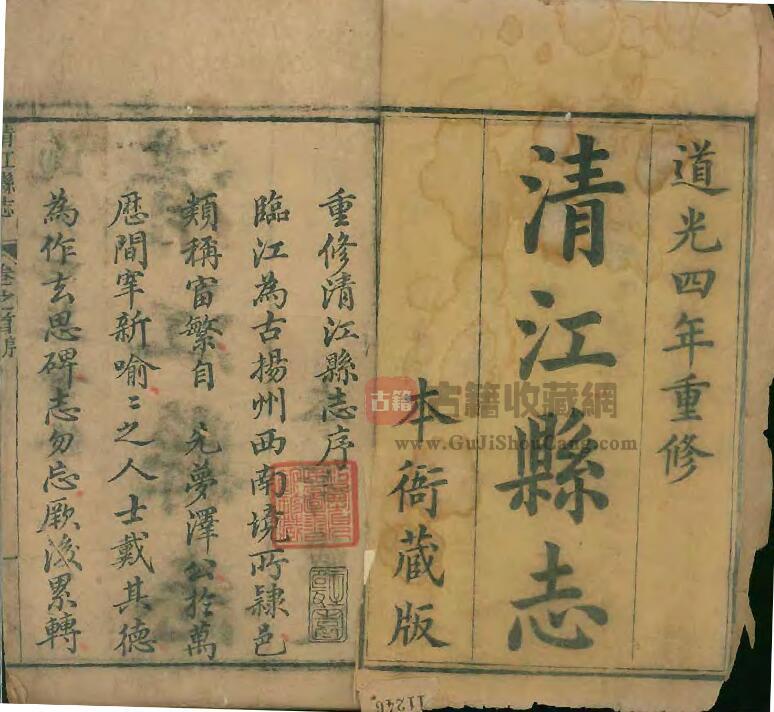 道光四年重修
清江縣志
本衙藏版
重修清江縣志序
臨江為古揚州西南境所隷邑
類稱富繁自　先夢澤公於萬
厯間宰新喻〻之人士戴其德
為作去思碑志勿忘厥後累轉
清江縣志
卷之首序
古籍
古籍收藏網
www.GuJiShouCang.com
11246